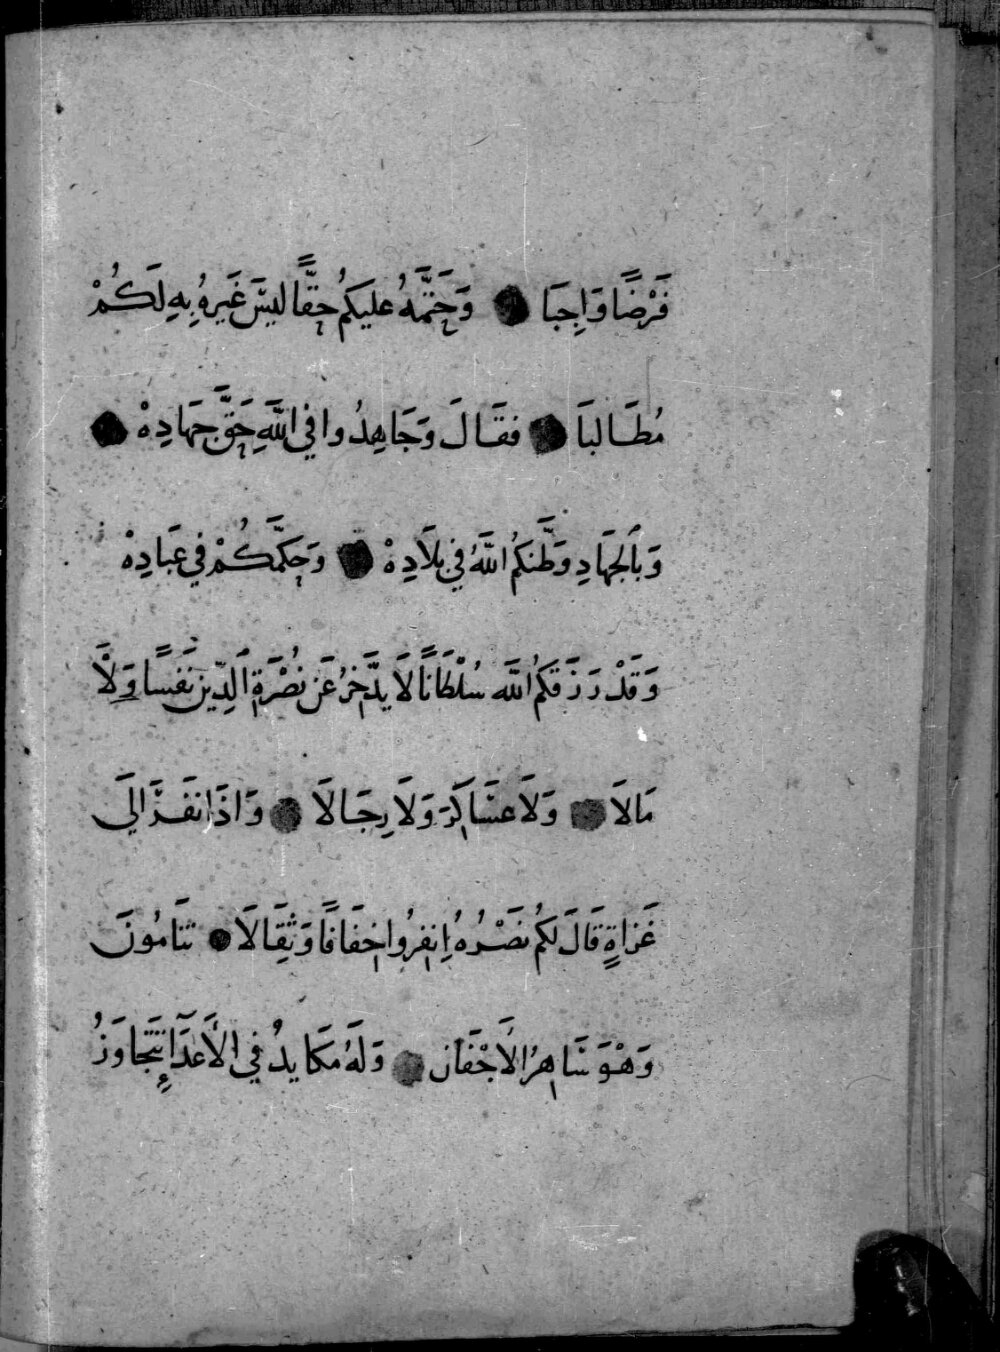 فَرْضًا وَاجِبَا وَحَتَّمَهُ عليكُم حقًّا ليسَ غَيرهُ بِهِ لَكُمْ
مُطَالبَا فقَالَ وَجَاهِدُوا في اللَّهِ حَقَّ جهَادِهْ
وَبالجهَادِ وَطَّنَكُم اللَّهُ في بلَادِهْ وَحَكَّمَكُمْ في عبَادِهْ
وَقَدْ رَزَقَكُم اللَّه سُلْطَانًا لَا يدَّخرُ عَن نُصْرَةِ الدِّين نَفسًا وَلَا
مَالَا وَلَا عسَاكرَ وَلَا رِجَالَا وَاذَا نفَرَ الَي
غَزاةٍ قَالَ لكُم نصْرُهُ اِنفِرُوا خفَافًا وَثقَالَا تنَامُونَ
وَهْوَ سَاهِرُ الَاجْفَان وَلَهُ مكَايدُ في الَاعدَآءِ تتجَاوَزُ